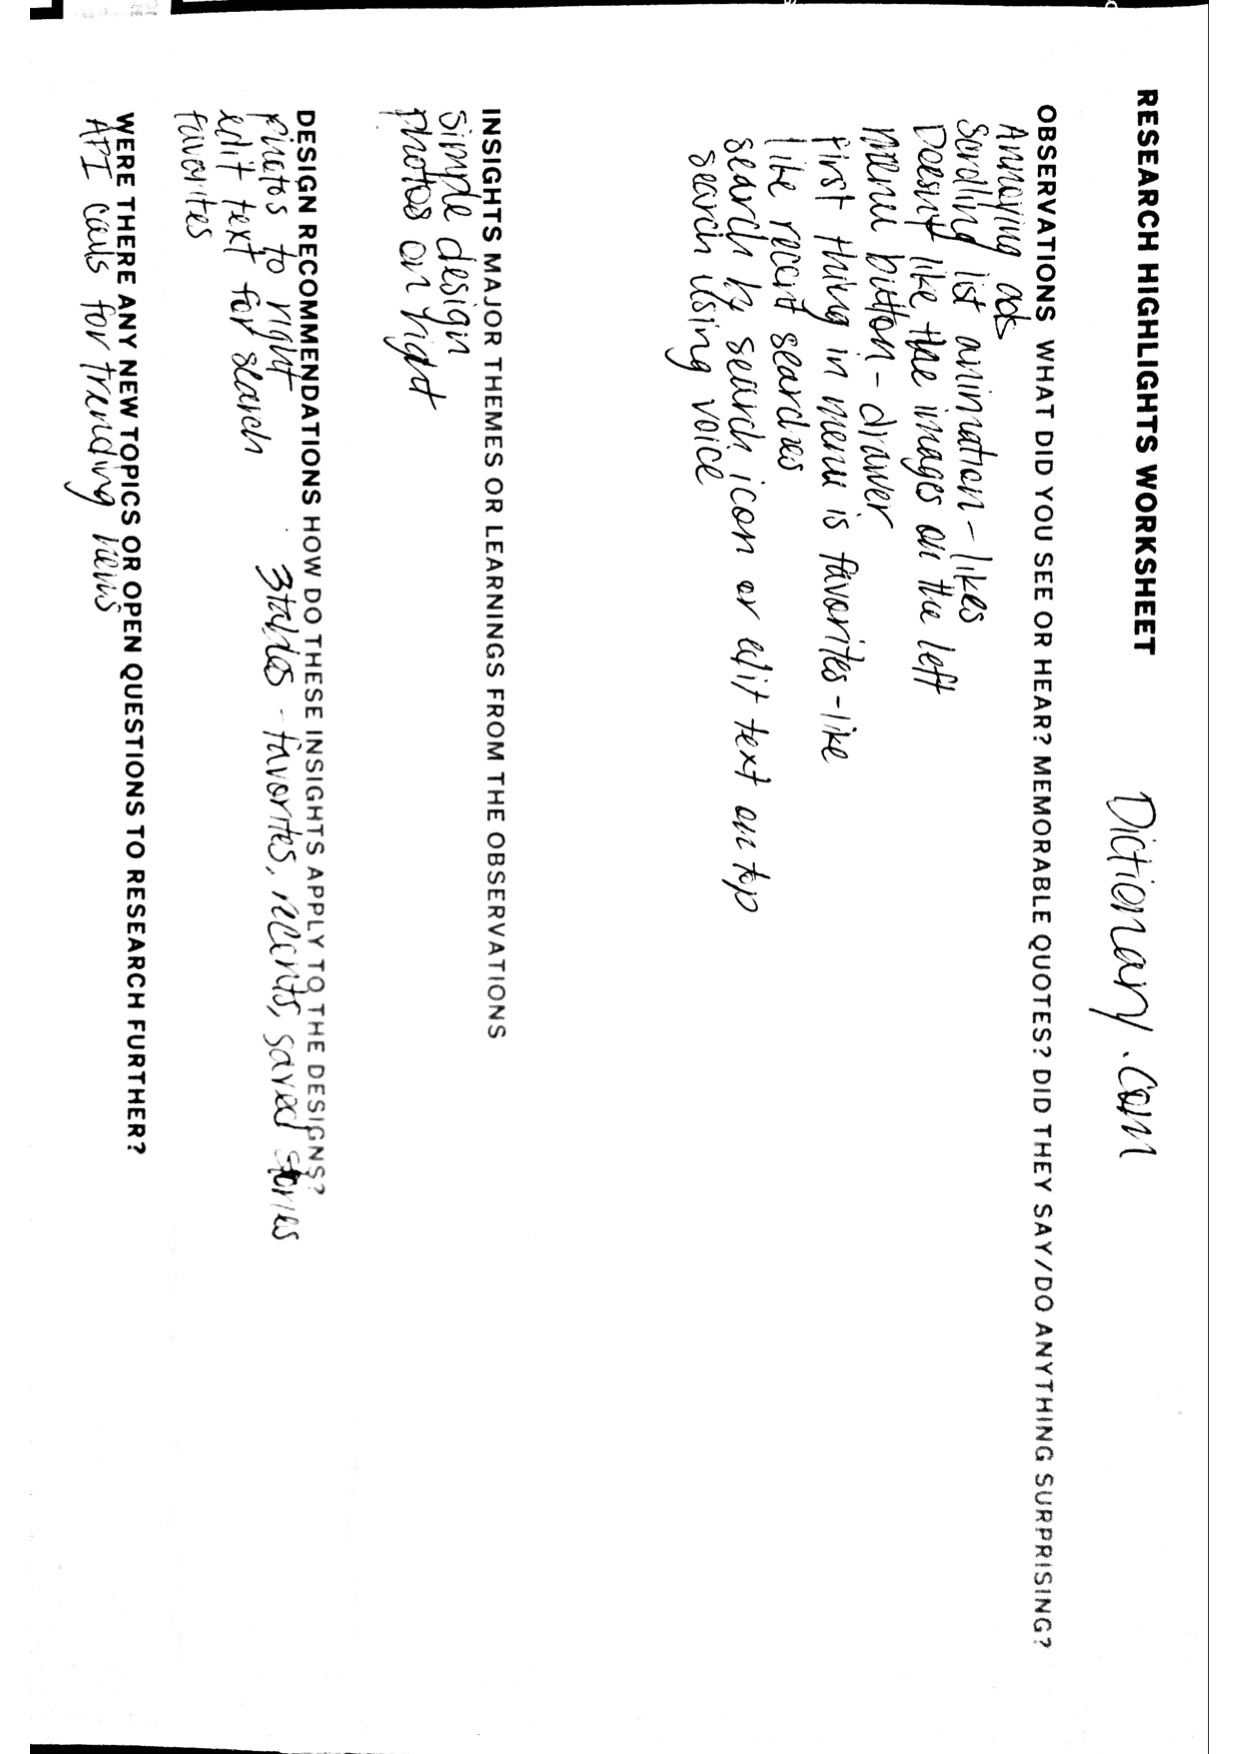 RESEARCH HIGHLIGHTS WORKSHEET Dictionary.com
OBSERVATIONS WHAT DID YOU SEE OR HEAR? MEMORABLE QUOTES? DID THEY SAY/DO ANYTHING SURPRISING?
Annoying ads
Scrolling list animation - likes
Doesn't like the images on the left
Menu button - drawer
first thing in menu is favorites - like
like recent searches
search by search icon or edit text on top
search using voice
INSIGHTS MAJOR THEMES OR LEARNINGS FROM THE OBSERVATIONS
simple design
photos on right
DESIGN RECOMMENDATIONS HOW DO THESE INSIGHTS APPLY TO THE DESIGNS?
photos to right 3 tabs - favorites, recents, saved stories
edit text for search
favorites
WERE THERE ANY NEW TOPICS OR OPEN QUESTIONS TO RESEARCH FURTHER?
API calls for trending news